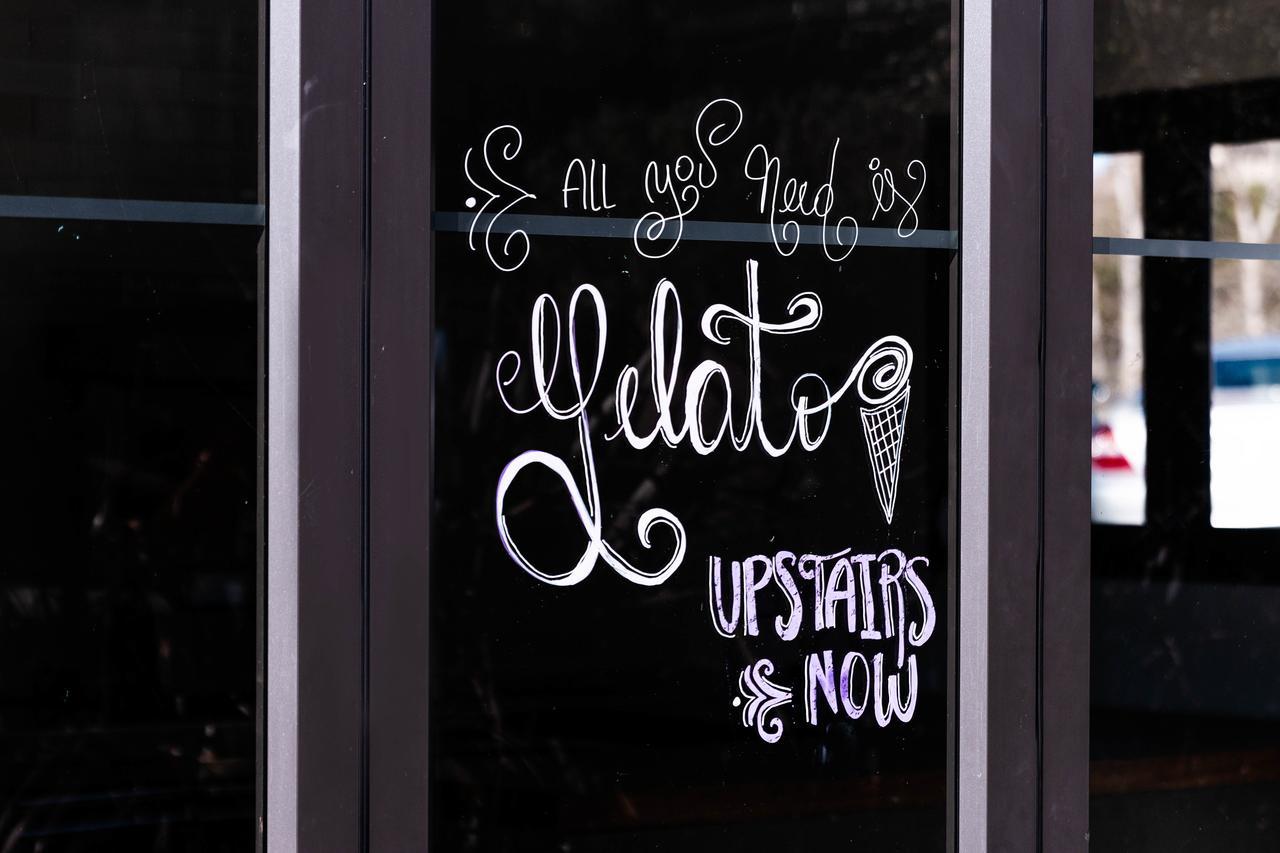 All you need is
Gelato
UPSTAIRS
NOW